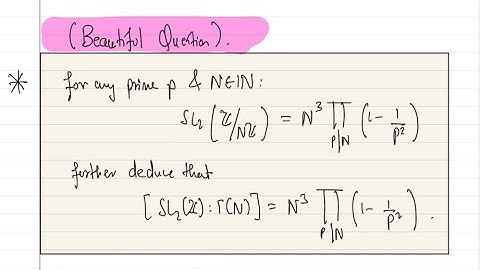 (Beautiful Question).
* for any prime p & N∈ℕ:
SL₂(ℤ/Nℤ) = N³ ∏_{p|N} (1 - 1/p²)
further deduce that
[SL₂(ℤ):Γ(N)] = N³ ∏_{p|N} (1 - 1/p²).